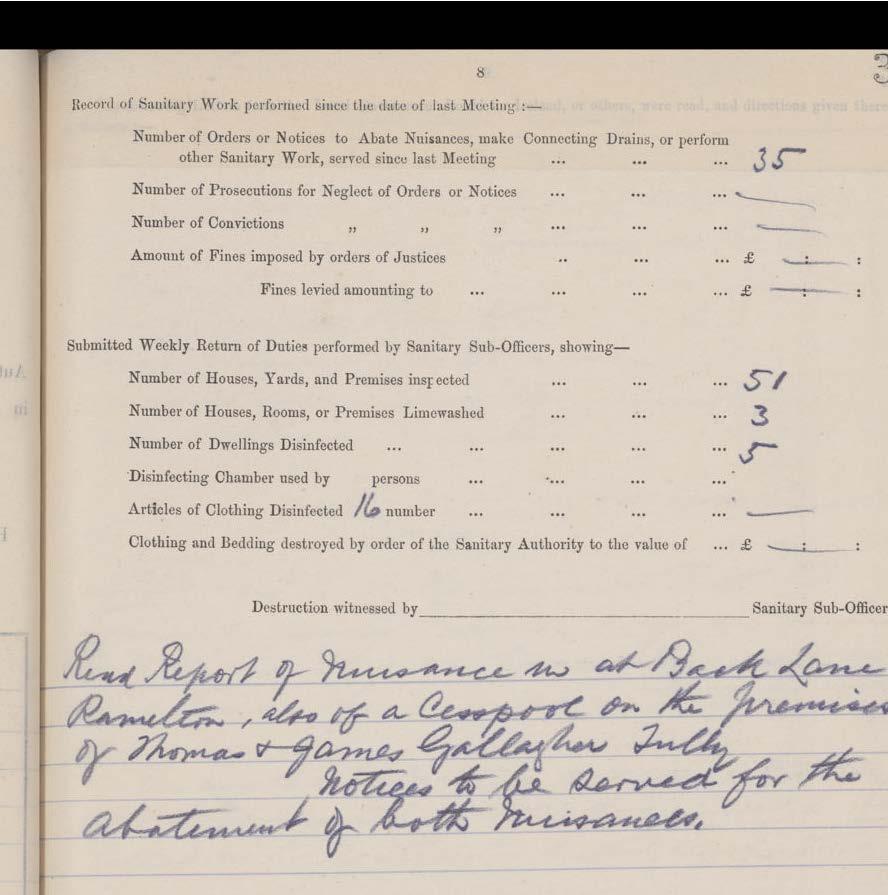 8
3
Record of Sanitary Work performed since the date of last Meeting :—
Number of Orders or Notices to Abate Nuisances, make Connecting Drains, or perform
other Sanitary Work, served since last Meeting ... ... ... 35
Number of Prosecutions for Neglect of Orders or Notices ... ... ... —
Number of Convictions „ „ „ ... ... ... —
Amount of Fines imposed by orders of Justices .. ... ... £ — : — :
Fines levied amounting to ... ... ... ... £ — : — :
Submitted Weekly Return of Duties performed by Sanitary Sub-Officers, showing—
Number of Houses, Yards, and Premises inspected ... ... ... 51
Number of Houses, Rooms, or Premises Limewashed ... ... ... 3
Number of Dwellings Disinfected ... ... ... ... ... 5
Disinfecting Chamber used by persons ... ... ... ...
Articles of Clothing Disinfected 16 number ... ... ... ... —
Clothing and Bedding destroyed by order of the Sanitary Authority to the value of ... £ — : — :
Destruction witnessed by Sanitary Sub-Officer
Read Report of Nuisance at Back Lane
Ramelton, also of a Cesspool on the premises
of Thomas & James Gallagher Tully
Notices to be served for the
abatement of both nuisances.